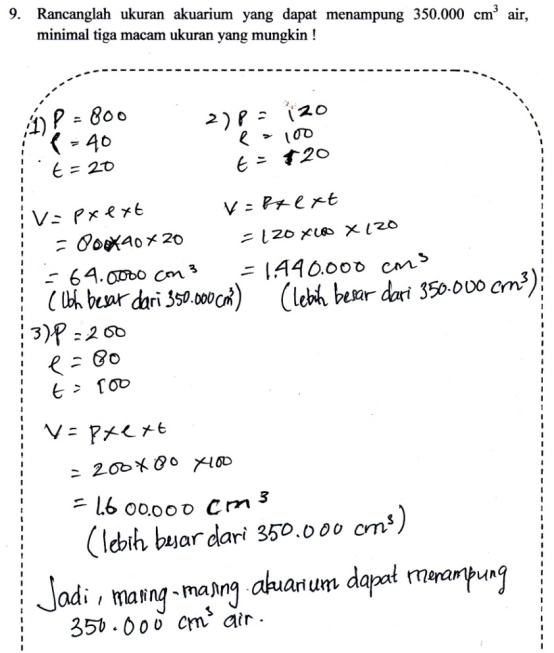 9. Rancanglah ukuran akuarium yang dapat menampung 350.000 cm³ air,
minimal tiga macam ukuran yang mungkin !
1) P = 800
l = 40
t = 20
V = P x l x t
= 800 x 40 x 20
= 64.0000 cm³
(lbh besar dari 350.000 cm³)
2) P = 120
l = 100
t = 120
V = P x l x t
= 120 x 100 x 120
= 1.440.000 cm³
(lebih besar dari 350.000 cm³)
3) P = 200
l = 80
t = 100
V = P x l x t
= 200 x 80 x 100
= 1.600.000 cm³
(lebih besar dari 350.000 cm³)
Jadi, masing-masing akuarium dapat menampung
350.000 cm³ air.